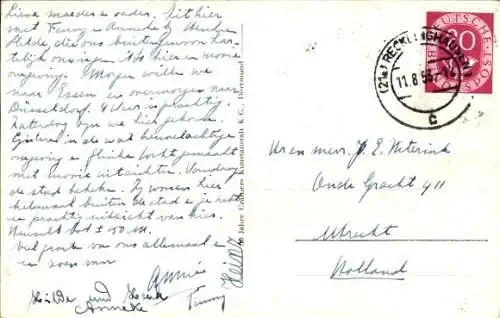 Lieve moeder en vader. Zit hier
met Fenny en Anneke bij Henk en
Hilde, die ons buitengewoon har-
telijk ontvangen. Als hier een mooie
omgeving. Morgen willen we
naar Essen en overmorgen naar
Düsseldorf. 't Weer is prachtig.
Zaterdag zijn we hier gekomen.
Gisteren in de wat heuvelachtige
omgeving een flinke tocht gemaakt
met mooie uitzichten. Vandaag
de stad bekeken. Zij wonen hier
helemaal buiten de stad en je hebt
een prachtig uitzicht van hier.
Heuvels tot ± 150 M.
Veel groeten van ons allemaal en
een zoen van
Annie
Fenny
Heinz
Hilde und Henk
Anneke
Jahre Cramers Kunstanstalt K.G., Dortmund
DEUTSCHE BUNDESPOST
20
(21a) RECKLINGHAUSEN
11.8.53
c
Aan en mevr. J. E. Niterink
Oude Gracht 411
Utrecht
Holland